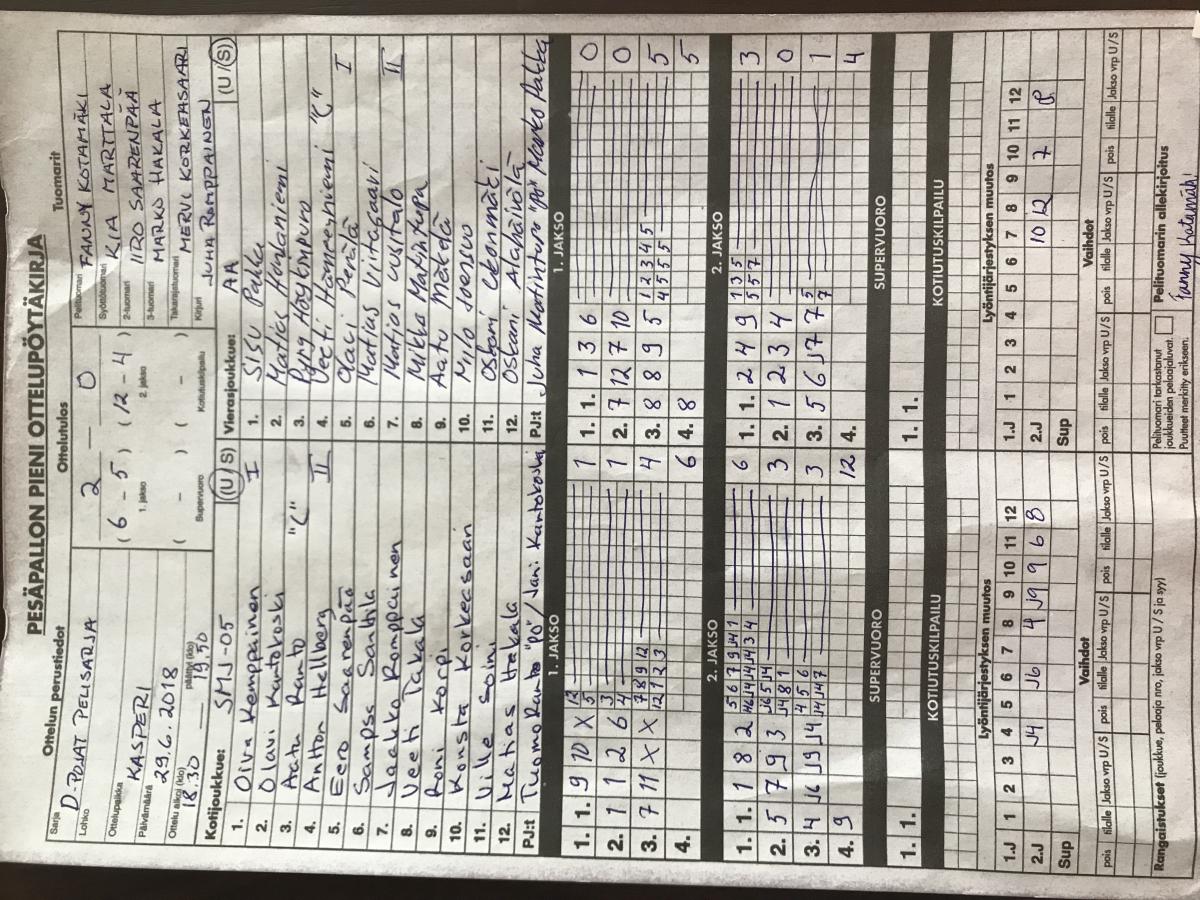 PESÄPALLON PIENI OTTELUPÖYTÄKIRJA
Ottelun perustiedot
Ottelutulos
Tuomarit
Sarja
D-POJAT PELISARJA
Lohko
Ottelupaikka
KASPERI
Päivämäärä
29.6.2018
Ottelu alkoi (klo)
18.30
päättyi (klo)
19.50
2 — 0
( 6 - 5 ) ( 12 - 4 )
1. jakso 2. jakso
( - ) ( - )
Supervuoro Kotiutuskilpailu
Pelituomari FANNY KOTAMÄKI
Syöttötuomari KIA MARTTALA
2-tuomari IIRO SAARENPÄÄ
3-tuomari MARKO HAKALA
Takarajatuomari MERVI KORKEASAARI
Kirjuri JUHA ROMPPAINEN
Kotijoukkue: SMJ-05 (U/S)
1. Oiva Kemppainen I
2. Olavi Kantokoski
3. Aatu Ranto "C"
4. Anton Hellberg II
5. Eero Saarenpää
6. Sampsa Santila
7. Jaakko Romppainen
8. Veeti Takala
9. Roni Korpi
10. Konsta Korkeasaari
11. Ville Soini
12. Matias Hakala
PJ:t Tuomo Ranto "PÖ" / Jani Kantokoski
Vierasjoukkue: AA (U/S)
1. Sisu Pakka
2. Matias Pohjaniemi
3. Pyry Häykinpuro
4. Veeti Hämeenniemi "C"
5. Olavi Perälä I
6. Matias Viitasaari
7. Matias Uusitalo II
8. Mikko Mäkintupa
9. Aatu Mäkelä
10. Milo Joensuu
11. Oskari
12. Oskari Alahäivälä
PJ:t Juha Martinturo "PÖ" Marko Pakka
1. JAKSO
1. JAKSO
1. 1. 9 10 X 12 5 1
2. 1 1 2 6 3 4 1
3. 7 11 X X 7 8 9 12 12 1 2 3 4
4. 6
1. 1. 1 3 6 0
2. 7 12 7 10 0
3. 8 8 9 5 1 2 3 4 5 4 5 5 5 5
4. 8 5
2. JAKSO
2. JAKSO
1. 1. 1 8 2 5 6 7 9 J4 1 J6 J4 J4 J4 3 4 6
2. 5 7 9 3 J6 5 J4 J4 8 1 3
3. 4 J6 J9 J4 4 5 6 J4 J4 7 3
4. 9 12
1. 1. 2 4 9 1 3 5 5 5 7 3
2. 1 2 3 4 0
3. 5 6 J7 7 5 7 1
4. 4
SUPERVUORO
SUPERVUORO
1. 1.
1. 1.
KOTIUTUSKILPAILU
KOTIUTUSKILPAILU
Lyöntijärjestyksen muutos
Lyöntijärjestyksen muutos
1.J 1 2 3 4 5 6 7 8 9 10 11 12
2.J J4 J6 4 J9 9 6 8
Sup
1.J 1 2 3 4 5 6 7 8 9 10 11 12
2.J 10 12 7 8
Sup
Vaihdot
Vaihdot
pois tilalle Jakso vrp U/S pois tilalle Jakso vrp U/S pois tilalle Jakso vrp U/S
pois tilalle Jakso vrp U/S pois tilalle Jakso vrp U/S pois tilalle Jakso vrp U/S
Rangaistukset (joukkue, pelaaja nro, jakso vrp U / S ja syy)
Pelituomari tarkastanut
joukkueiden pelaajaluvat.
Puutteet merkitty erikseen.
Pelituomarin allekirjoitus
Fanny Kotamäki